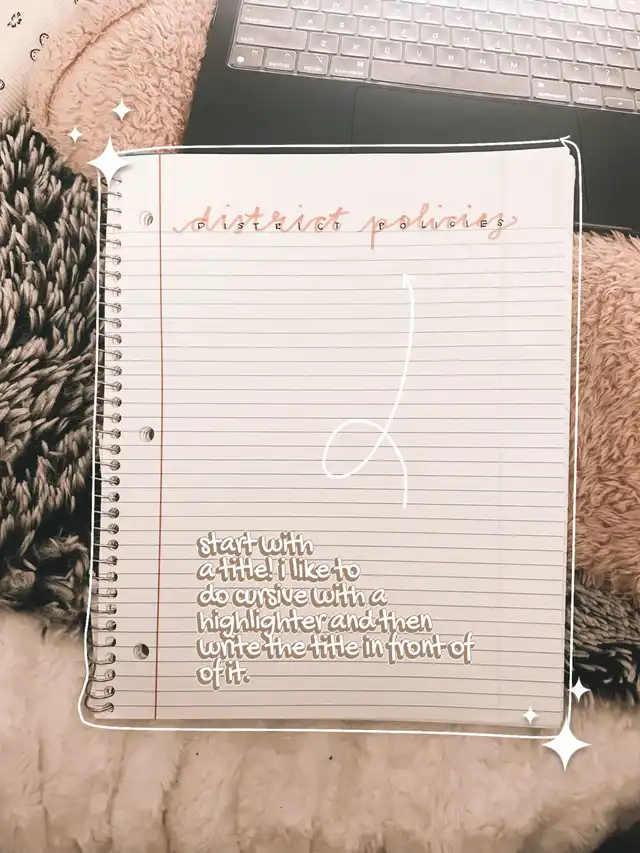 district policies
DISTRICT POLICIES
start with
a title! i like to
do cursive with a
highlighter and then
write the title in front of
of it.